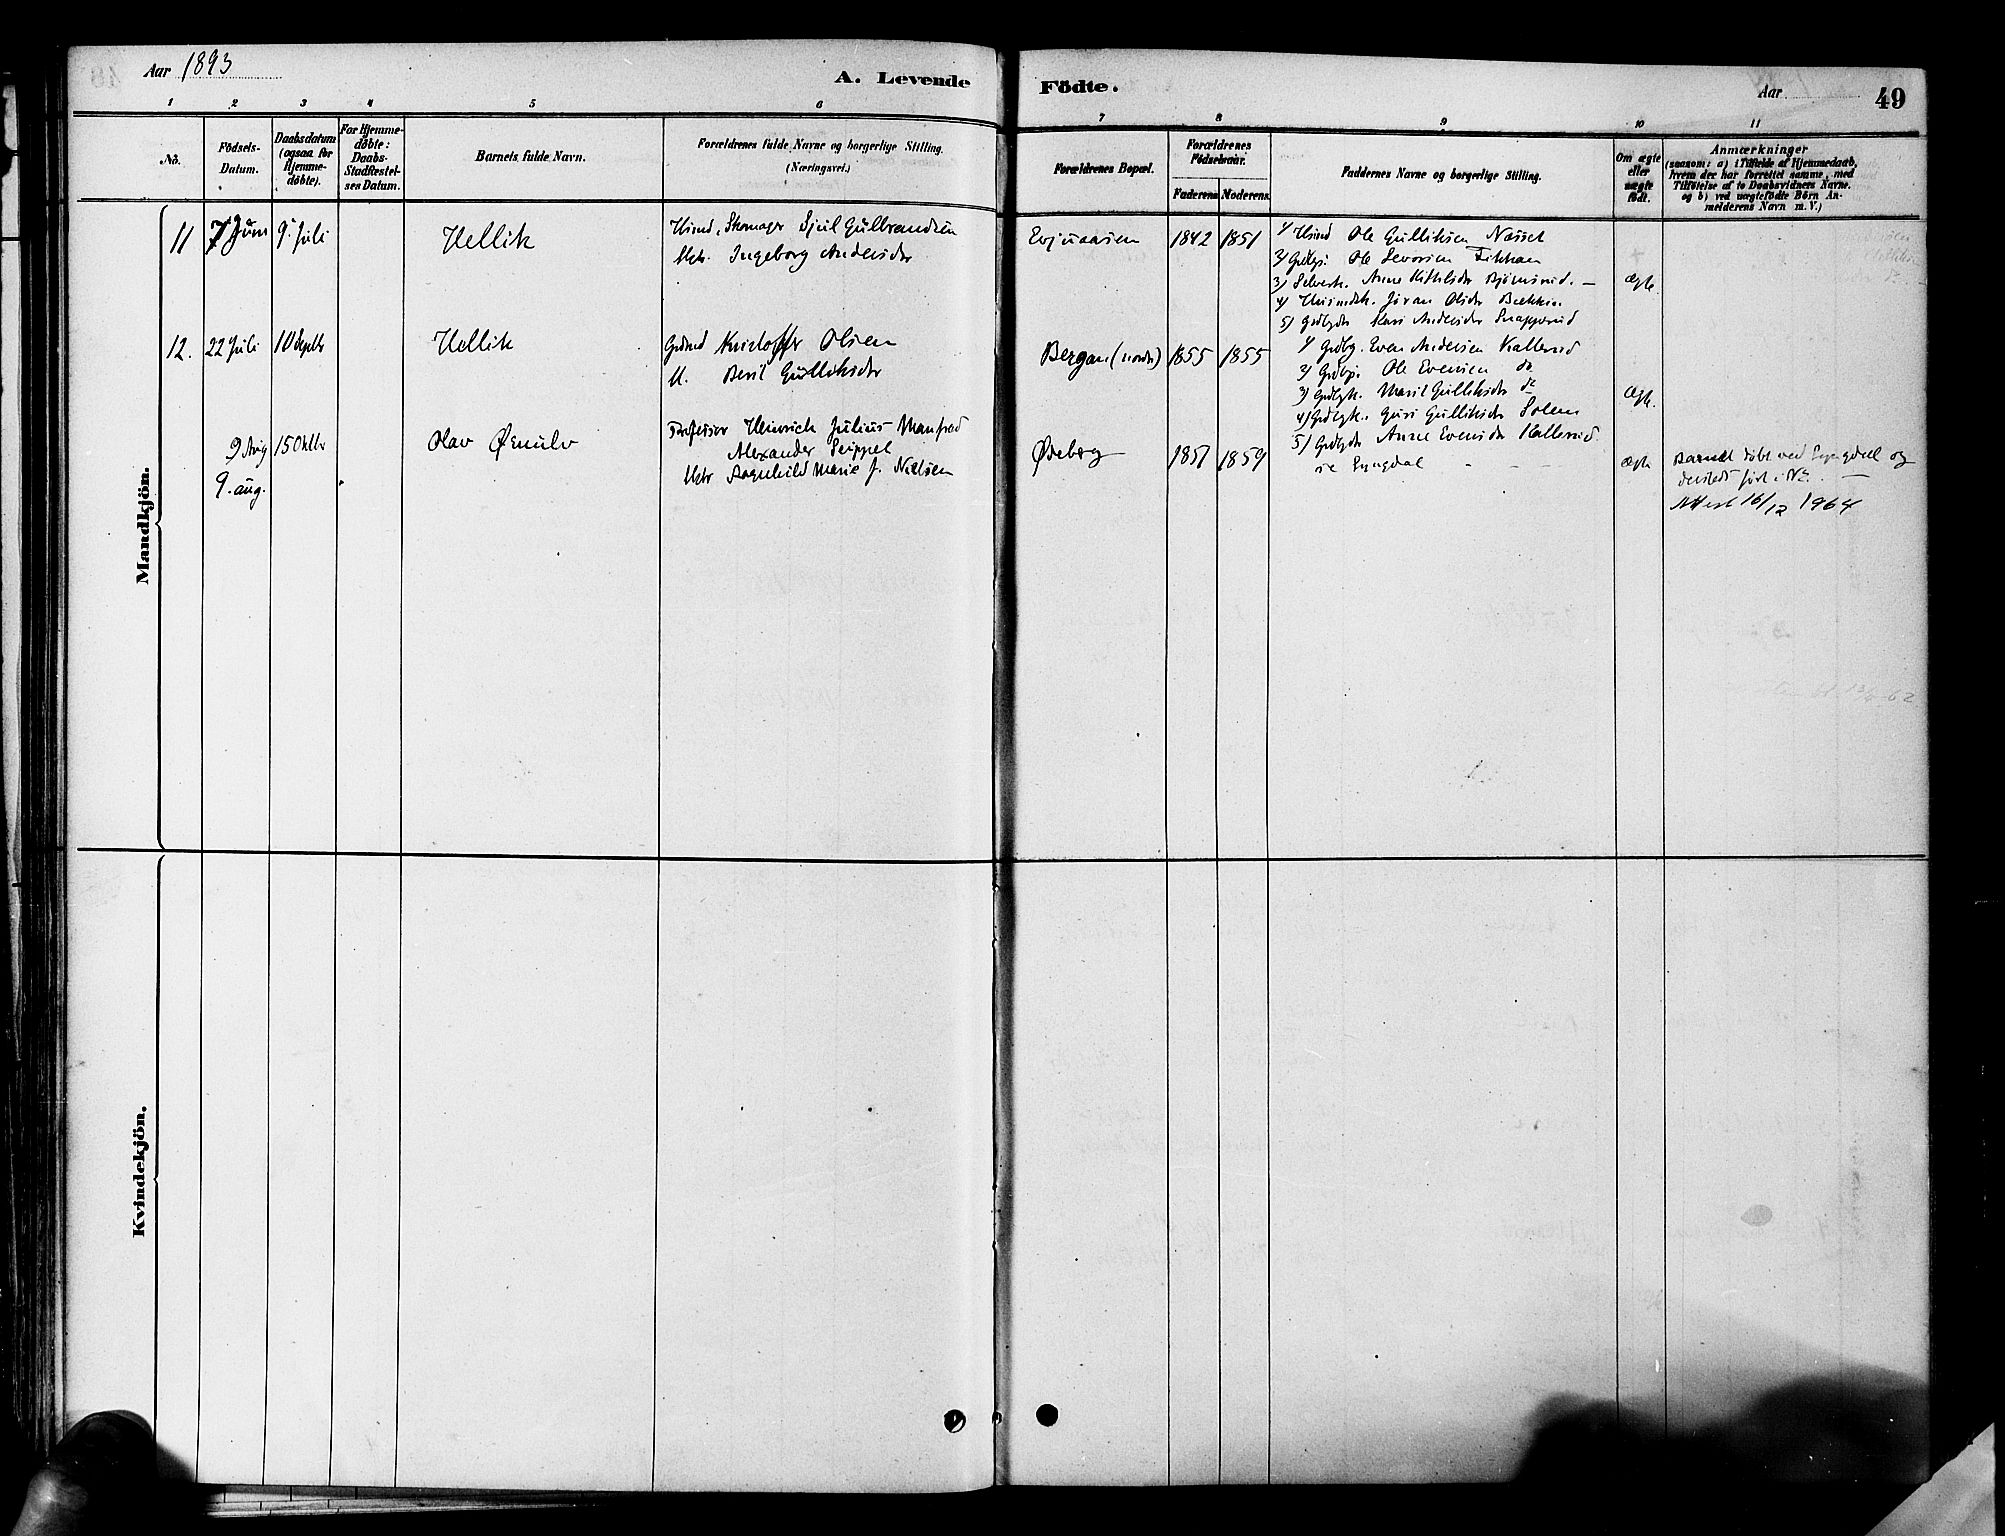 Aar 1893
A. Levende Födte.
Aar
49
1 2 3 4 5 6 7 8 9 10 11
No.
Födsels-Datum.
Daabsdatum (ogsaa for Hjemme-døbte).
For Hjemme-døbte: Daabs-Stadfæstel-ses Datum.
Barnets fulde Navn.
Forældrenes fulde Navne og borgerlige Stilling. (Næringsvei.)
Forældrenes Bopæl.
Forældrenes Födselsaar.
Faderens Moderens
Faddernes Navne og borgerlige Stilling.
Om ægte eller uægte födt.
Anmærkninger
(saasom: a) i Tilfælde af Hjemmedaab,
hvem der har forrettet samme, med
Tilföielse af to Daabsvidners Navne.
og b) ved uægtefödte Börn An-
melderens Navn m. V.)
Mandkjön.
11 7 Juni 9 Juli Hellik
Husmd, Skomager Gullbrandsen
Ingeborg Andersdr
Evjuaasen 1842 1851
1/ Husmd Ole Gulliksen Næsset
2/ Ole Levorsen
3/ Anne Kittilsdr Bjørnsrud. —
4/ Jøran Olsdr Bækken
5/ Kari Andersdr Snapperud
ægte.
12. 22 Juli 10 Septbr Hellik
Kristoffer Olsen
Beril Gulliksdr
Bergan (nordre) 1855 1855
1/ Grdbg. Even Andersen Kallerud
2/ Ole Evensen do
3/ Marit Gulliksdr do
4/ Guri Gulliksdr Solem
5/ Anne Evensdr Kallerud
Ægte.
9 Aug 15 Oktbr Olav Ørnulv
9. aug.
Professor Heinrich Julius Manfred
Alexander Seippel
Hstr Ragnhild Marie f. Nielsen
Ødeberg 1851 1859
se Lyngdal - - -
ægte
Barnet døbt ved Lyngdal og
dersteds ført i No. —
Attest 16/12 1964
Kvindekjön.